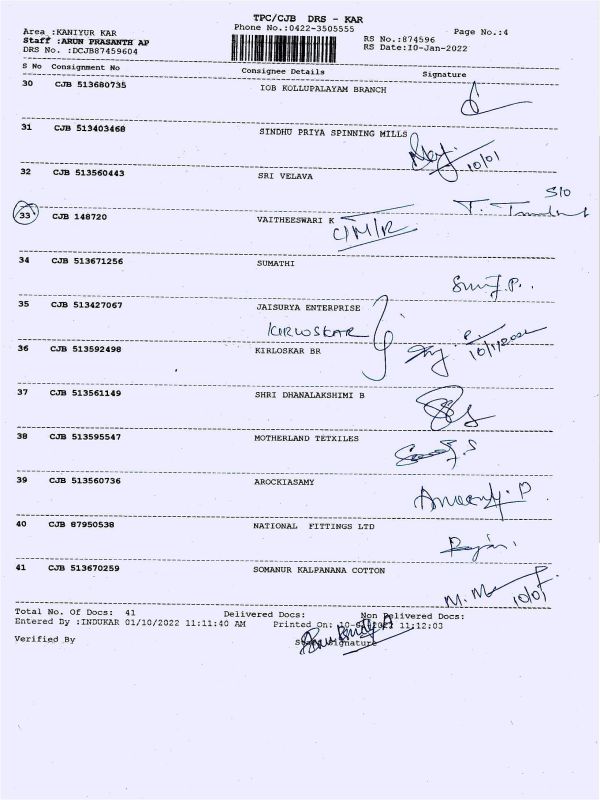 TPC/CJB DRS - KAR
Area :KANIYUR KAR Phone No.:0422-3505555 Page No.:4
Staff :ARUN PRASANTH AP RS No.:874596
DRS No. :DCJB87459604 RS Date:10-Jan-2022
S No Consignment No Consignee Details Signature
30 CJB 513680735 IOB KOLLUPALAYAM BRANCH
31 CJB 513403468 SINDHU PRIYA SPINNING MILLS
10/01
32 CJB 513560443 SRI VELAVA
S/O
33 CJB 148720 VAITHEESWARI K
34 CJB 513671256 SUMATHI
35 CJB 513427067 JAISURYA ENTERPRISE
KIRLOSKAR
36 CJB 513592498 KIRLOSKAR BR
10/1/2022
37 CJB 513561149 SHRI DHANALAKSHIMI B
38 CJB 513595547 MOTHERLAND TETXILES
39 CJB 513560736 AROCKIASAMY
40 CJB 87950538 NATIONAL FITTINGS LTD
41 CJB 513670259 SOMANUR KALPANANA COTTON
10/01
Total No. Of Docs: 41 Delivered Docs: Non Delivered Docs:
Entered By :INDUKAR 01/10/2022 11:11:40 AM Printed On: 10-01-2022 11:12:03
Verified By Staff Signature